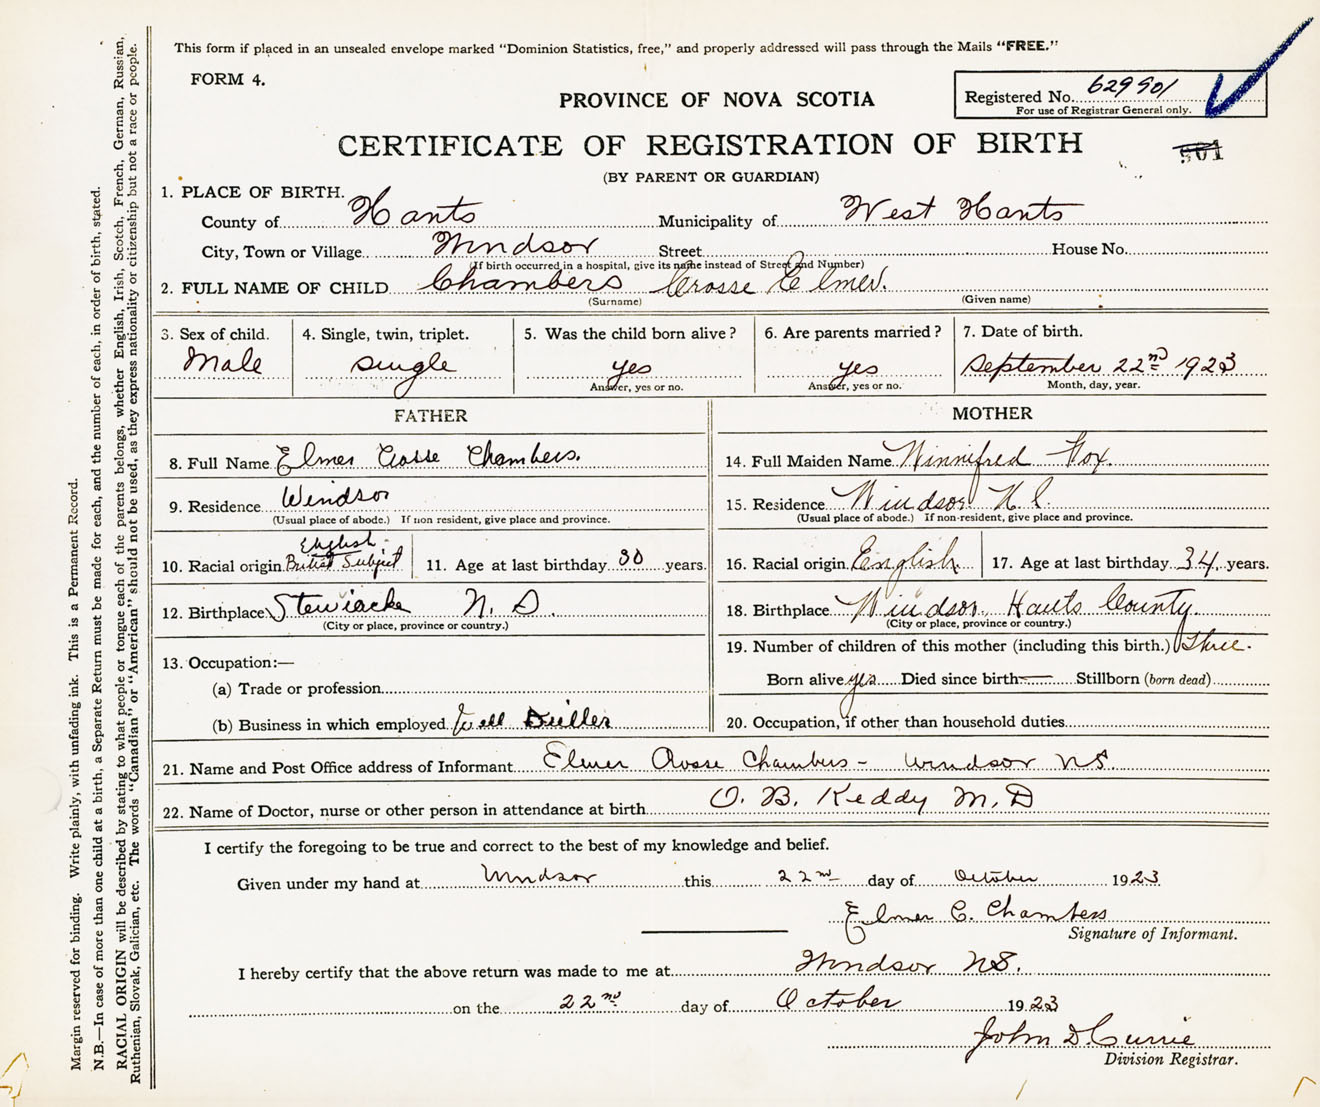 This form if placed in an unsealed envelope marked "Dominion Statistics, free," and properly addressed will pass through the Mails "FREE."
FORM 4.
Registered No. 629501
For use of Registrar General only.
PROVINCE OF NOVA SCOTIA
CERTIFICATE OF REGISTRATION OF BIRTH
501
(BY PARENT OR GUARDIAN)
1. PLACE OF BIRTH.
County of Hants Municipality of West Hants
City, Town or Village Windsor Street House No.
(If birth occurred in a hospital, give its name instead of Street and Number)
2. FULL NAME OF CHILD Chambers Crosse Elmer.
(Surname) (Given name)
3. Sex of child. 4. Single, twin, triplet. 5. Was the child born alive? 6. Are parents married? 7. Date of birth.
Male single yes yes September 22nd 1923
Answer, yes or no. Answer, yes or no. Month, day, year.
FATHER MOTHER
8. Full Name Elmer Crosse Chambers. 14. Full Maiden Name Winnifred Fox.
9. Residence Windsor 15. Residence Windsor N.S.
(Usual place of abode.) If non resident, give place and province. (Usual place of abode.) If non-resident, give place and province.
English
10. Racial origin British Subject 11. Age at last birthday 30 years. 16. Racial origin English 17. Age at last birthday 34 years.
12. Birthplace Stewiacke N.S. 18. Birthplace Windsor Hants County.
(City or place, province or country.) (City or place, province or country.)
19. Number of children of this mother (including this birth.) Three.
13. Occupation:—
(a) Trade or profession Born alive yes Died since birth — Stillborn (born dead)
(b) Business in which employed Well Driller 20. Occupation, if other than household duties
21. Name and Post Office address of Informant Elmer Crosse Chambers - Windsor NS.
22. Name of Doctor, nurse or other person in attendance at birth O. B. Keddy M.D
I certify the foregoing to be true and correct to the best of my knowledge and belief.
Given under my hand at Windsor this 22nd day of October 1923
Elmer C. Chambers
Signature of Informant.
I hereby certify that the above return was made to me at Windsor NS.
on the 22nd day of October 1923
John D. Currie
Division Registrar.
Margin reserved for binding. Write plainly, with unfading ink. This is a Permanent Record.
N.B.—In case of more than one child at a birth, a Separate Return must be made for each, and the number of each, in order of birth, stated.
RACIAL ORIGIN will be described by stating to what people or tongue each of the parents belongs, whether English, Irish, Scotch, French, German, Russian,
Ruthenian, Slovak, Galician, etc. The words "Canadian" or "American" should not be used, as they express nationality or citizenship but not a race or people.